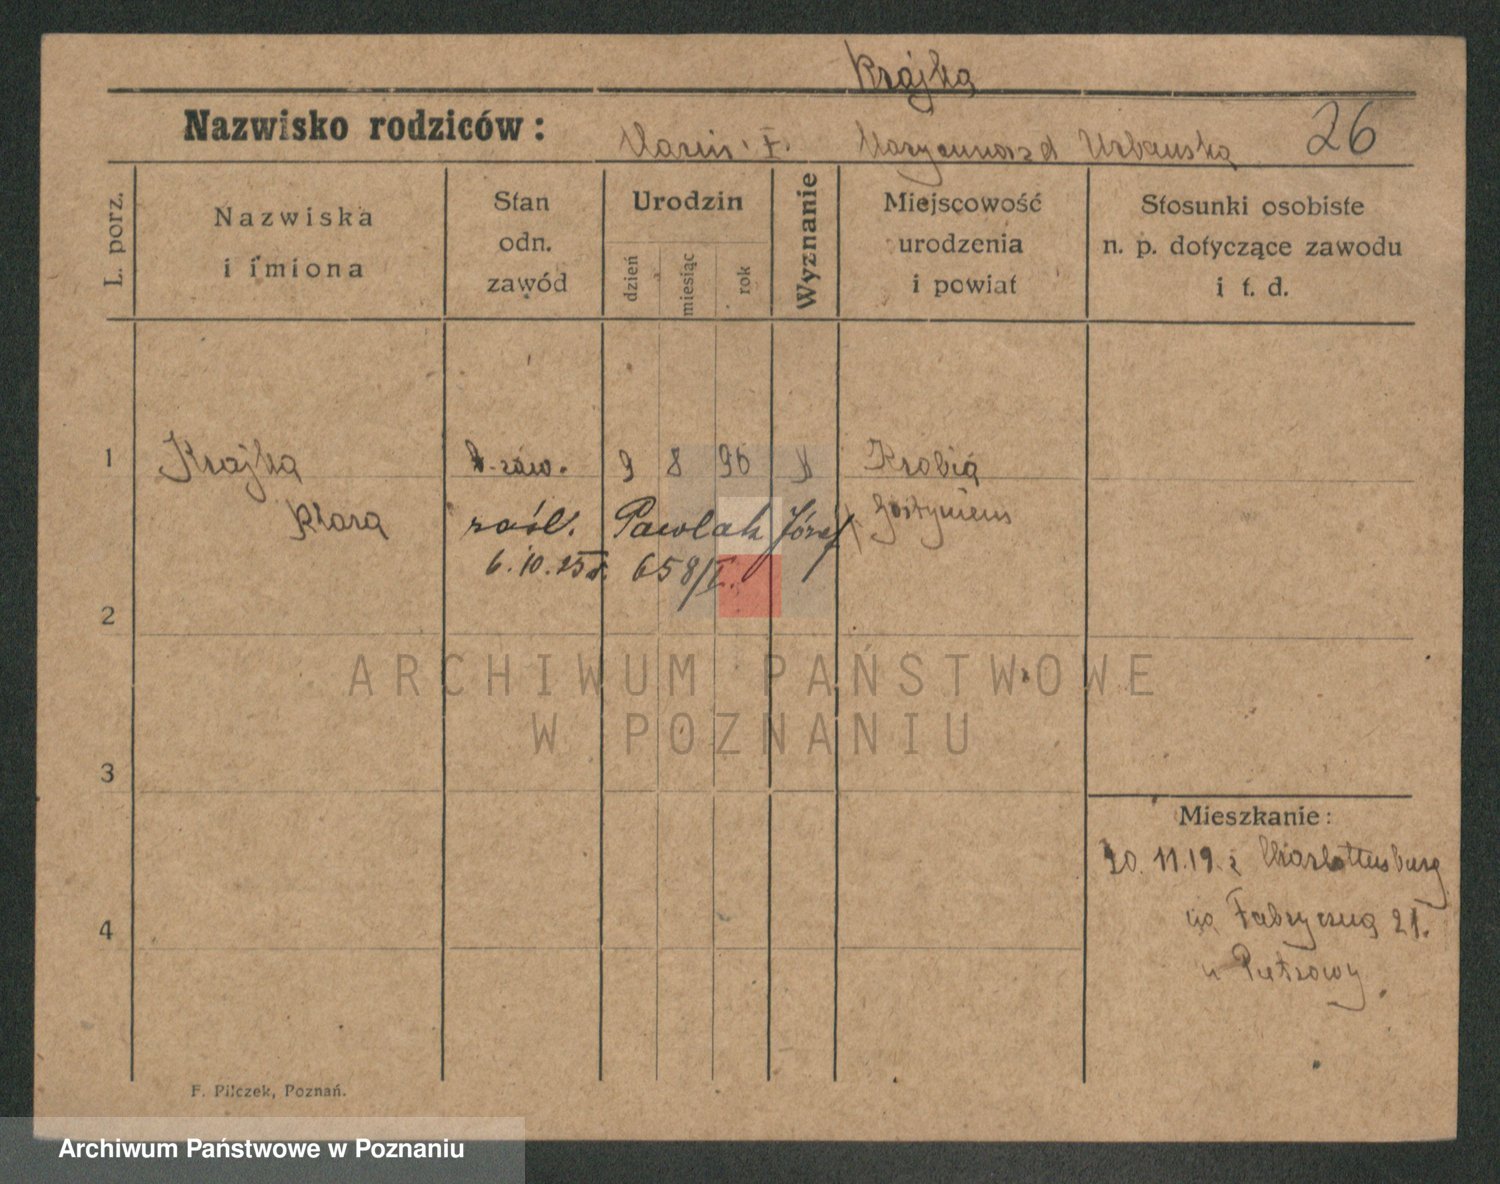 Krajka
Nazwisko rodziców: Marcin . F. Urbańska 26
L. porz.
Nazwiska
i imiona
Stan
odn.
zawód
Urodzin
dzień
miesiąc
rok
Wyznanie
Miejscowość
urodzenia
i powiat
Stosunki osobiste
n. p. dotyczące zawodu
i t. d.
1 Krajka zaw. 9 8 96 Krobia
Klara zaśl. Pawlak Józef Gostyniens
6.10.25 r. 658/I.
2
ARCHIWUM PAŃSTWOWE
W POZNANIU
3
Mieszkanie:
20.11.19 z Charlottenburg
4 na Fabryczną 21.
u
F. Pilczek, Poznań.
Archiwum Państwowe w Poznaniu